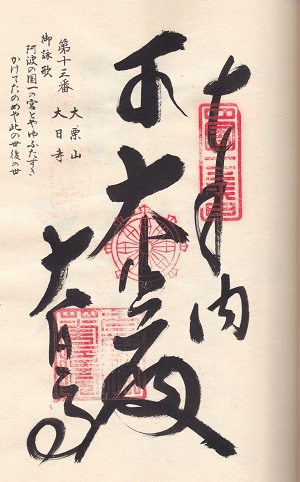 奉納
大悲殿
大日寺
第十三番 大栗山
大日寺
御詠歌
阿波の国一の宮とやゆふたすき
かけてたのめや此の世後の世